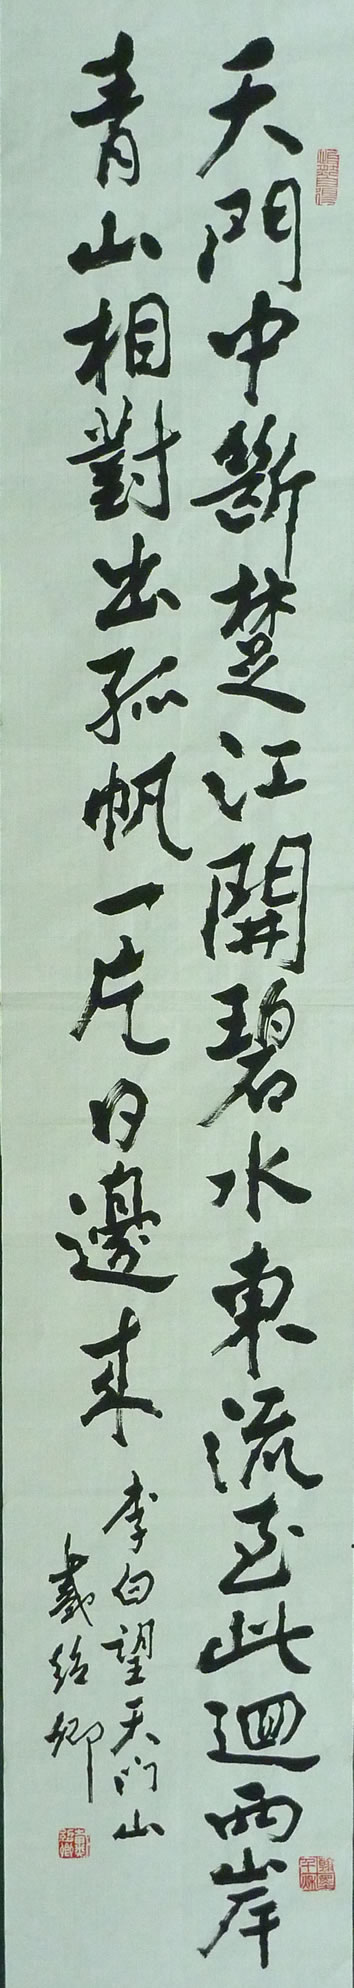 天門中斷楚江開碧水東流至此迴兩岸
青山相對出孤帆一片日邊來
李白望天门山
戴紹卿